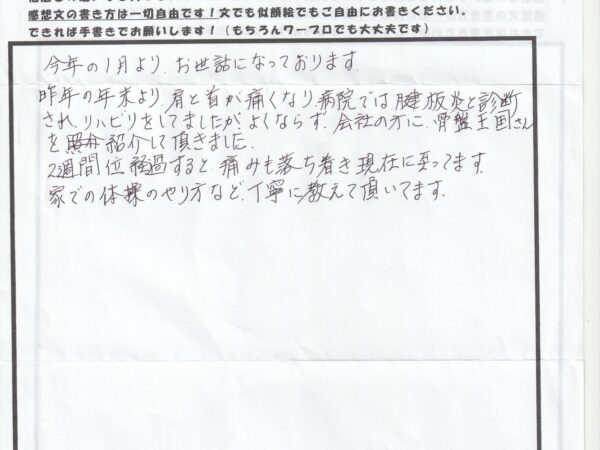 感想文の書き方は一切自由です！文でも似顔絵でもご自由にお書きください。
できれば手書きでお願いします！（もちろんワープロでも大丈夫です）
今年の1月より、お世話になっております。
昨年の年末より、肩と首が痛くなり、病院では腱板炎と診断
され、リハビリをしてましたが、よくならず、会社の方に、骨盤王国さん
を紹介して頂きました。
2週間位経過すると、痛みも落ち着き現在に至ってます。
家での体操のやり方など、丁寧に教えて頂いてます。